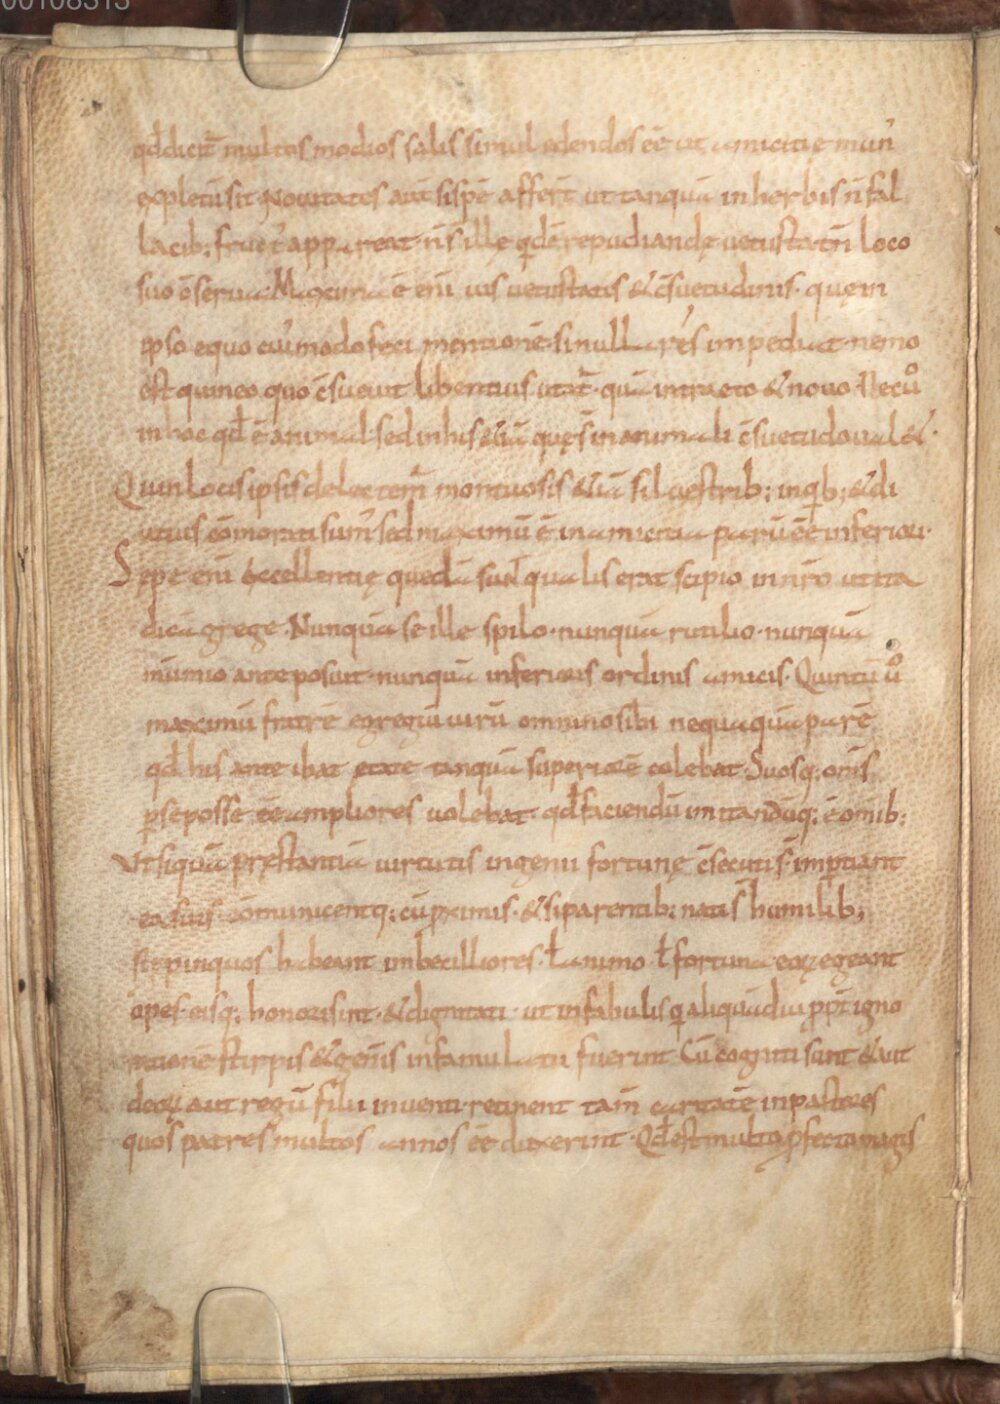 00108313
qđ dicit̄ multos modios salis simul edendos eē ut amicitię mun᷒
expletū sit. Novitates aut̄ si spē affer̄t ut tanquā in herbis n̄ fal
lacib; fruct᷒ appareat. n̄ s̄ illę qdē repudiandę vetustas tn̄ loco
suo c̄servanda. Maxima ē eni̅ vis vetustatis & c̄suetudinis. quę in
ipso equo cui᷒ modo feci mentionē. si nulla res impediat. nemo
est qui n̄ eo quo c̄suevit libentius utat̄. quā intracto & novo. Nec ů
in hoc qđ ē animal. sed in his &iā quę s̄ inanimalia c̄suetudo val&.
Quin locis ipsis delectem᷒ montuosis &iā silvestrib; in qb; & di
utius cōmorati sum᷒. sed maximū ē in amicitia parē eē inferiori.
Sepe eni̅ excellentię quedā sunt qualis erat scipio in nr̄o ut ita
dicā grege. Nunquā se ille philo. nunquā rutilio. nunquā
mumio anteposuit. nunquā inferioris ordinis amicis. Quintū ů
maximū fratrē egregiū virū omnino sibi nequaquā parē
qđ his ante ibat ętate tanquā superiorē colebat. Suosq; om̄s
p se posse eē ampliores volebat. qđ faciendū imitandūq; ē omīb;
Ut si quā pręstantiā virtutis ingenii fortunę c̄secuti s̄ imptiant
ea suis cōmunicentq; cū pximis. & si parentib; nati s̄ humilib;
si ppinquos habeant imbecilliores. ł animo ł fortuna eoꝝ egeant
opes. eisq; honori sint. & dignitati. ut in fabulis q aliquādiu ppt̄ igno
rationē stirpis & gen̄is in famulatu fuerint. Cū cogniti sunt & aut
deoꝝ aut regū filii inventi. retinent tam̄ caritatē in pastores
quos patres multos annos eē duxerint. Qđ est multo pfecto magis